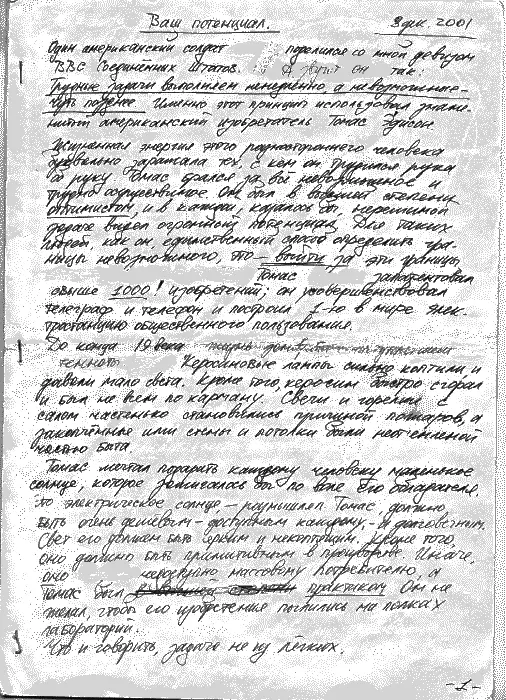 Ваш потенциал.
8 дек. 2001
Один американский солдат поделился со мной девизом
ВВС Соединённых Штатов. А звучит он так:
Трудные задачи выполняем немедленно, а невозможные –
чуть позднее. Именно этот принцип использовал знаме-
нитый американский изобретатель Томас Эдисон.
Жизненная энергия этого разностороннего человека
буквально заражала тех, с кем он трудился рука
об руку. Томас брался за всё невозможное и
трудно осуществимое. Он был в высшей степени
оптимистом, и в каждом, казалось бы, нерешимой
видел огромный потенциал. Для таких
людей, как он, единственный способ определить гра-
ницы невозможного, это – выйти за эти границы.
Томас запатентовал
свыше 1000! изобретений; он усовершенствовал
телеграф и телефон и построил 1-ю в мире элек-
тростанцию общественного пользования.
До конца 19 века
темного Керосиновые лампы сильно коптили и
давали мало света. Кроме того, керосин быстро сгорал
и был не всем по карману. Свечи и горелки с
салом частенько становились причиной пожаров, а
закопчённые ими стены и потолки были неотъемлемой
частью быта.
Томас мечтал подарить каждому человеку маленькое
солнце, которое зажигалось бы по воле его обладателя
Это электрическое солнце, – размышлял Томас, должно
быть очень дешевым – доступным каждому, – и долговечным.
Свет его должен быть ярким и некоптящим. Кроме того,
оно должно быть примитивным в производстве. Иначе,
оно массовому потребителю, а
Томас был практиком. Он не
желал, чтобы его изобретения пылились на полках
лабораторий.
Что и говорить, задача не из лёгких.
-1-